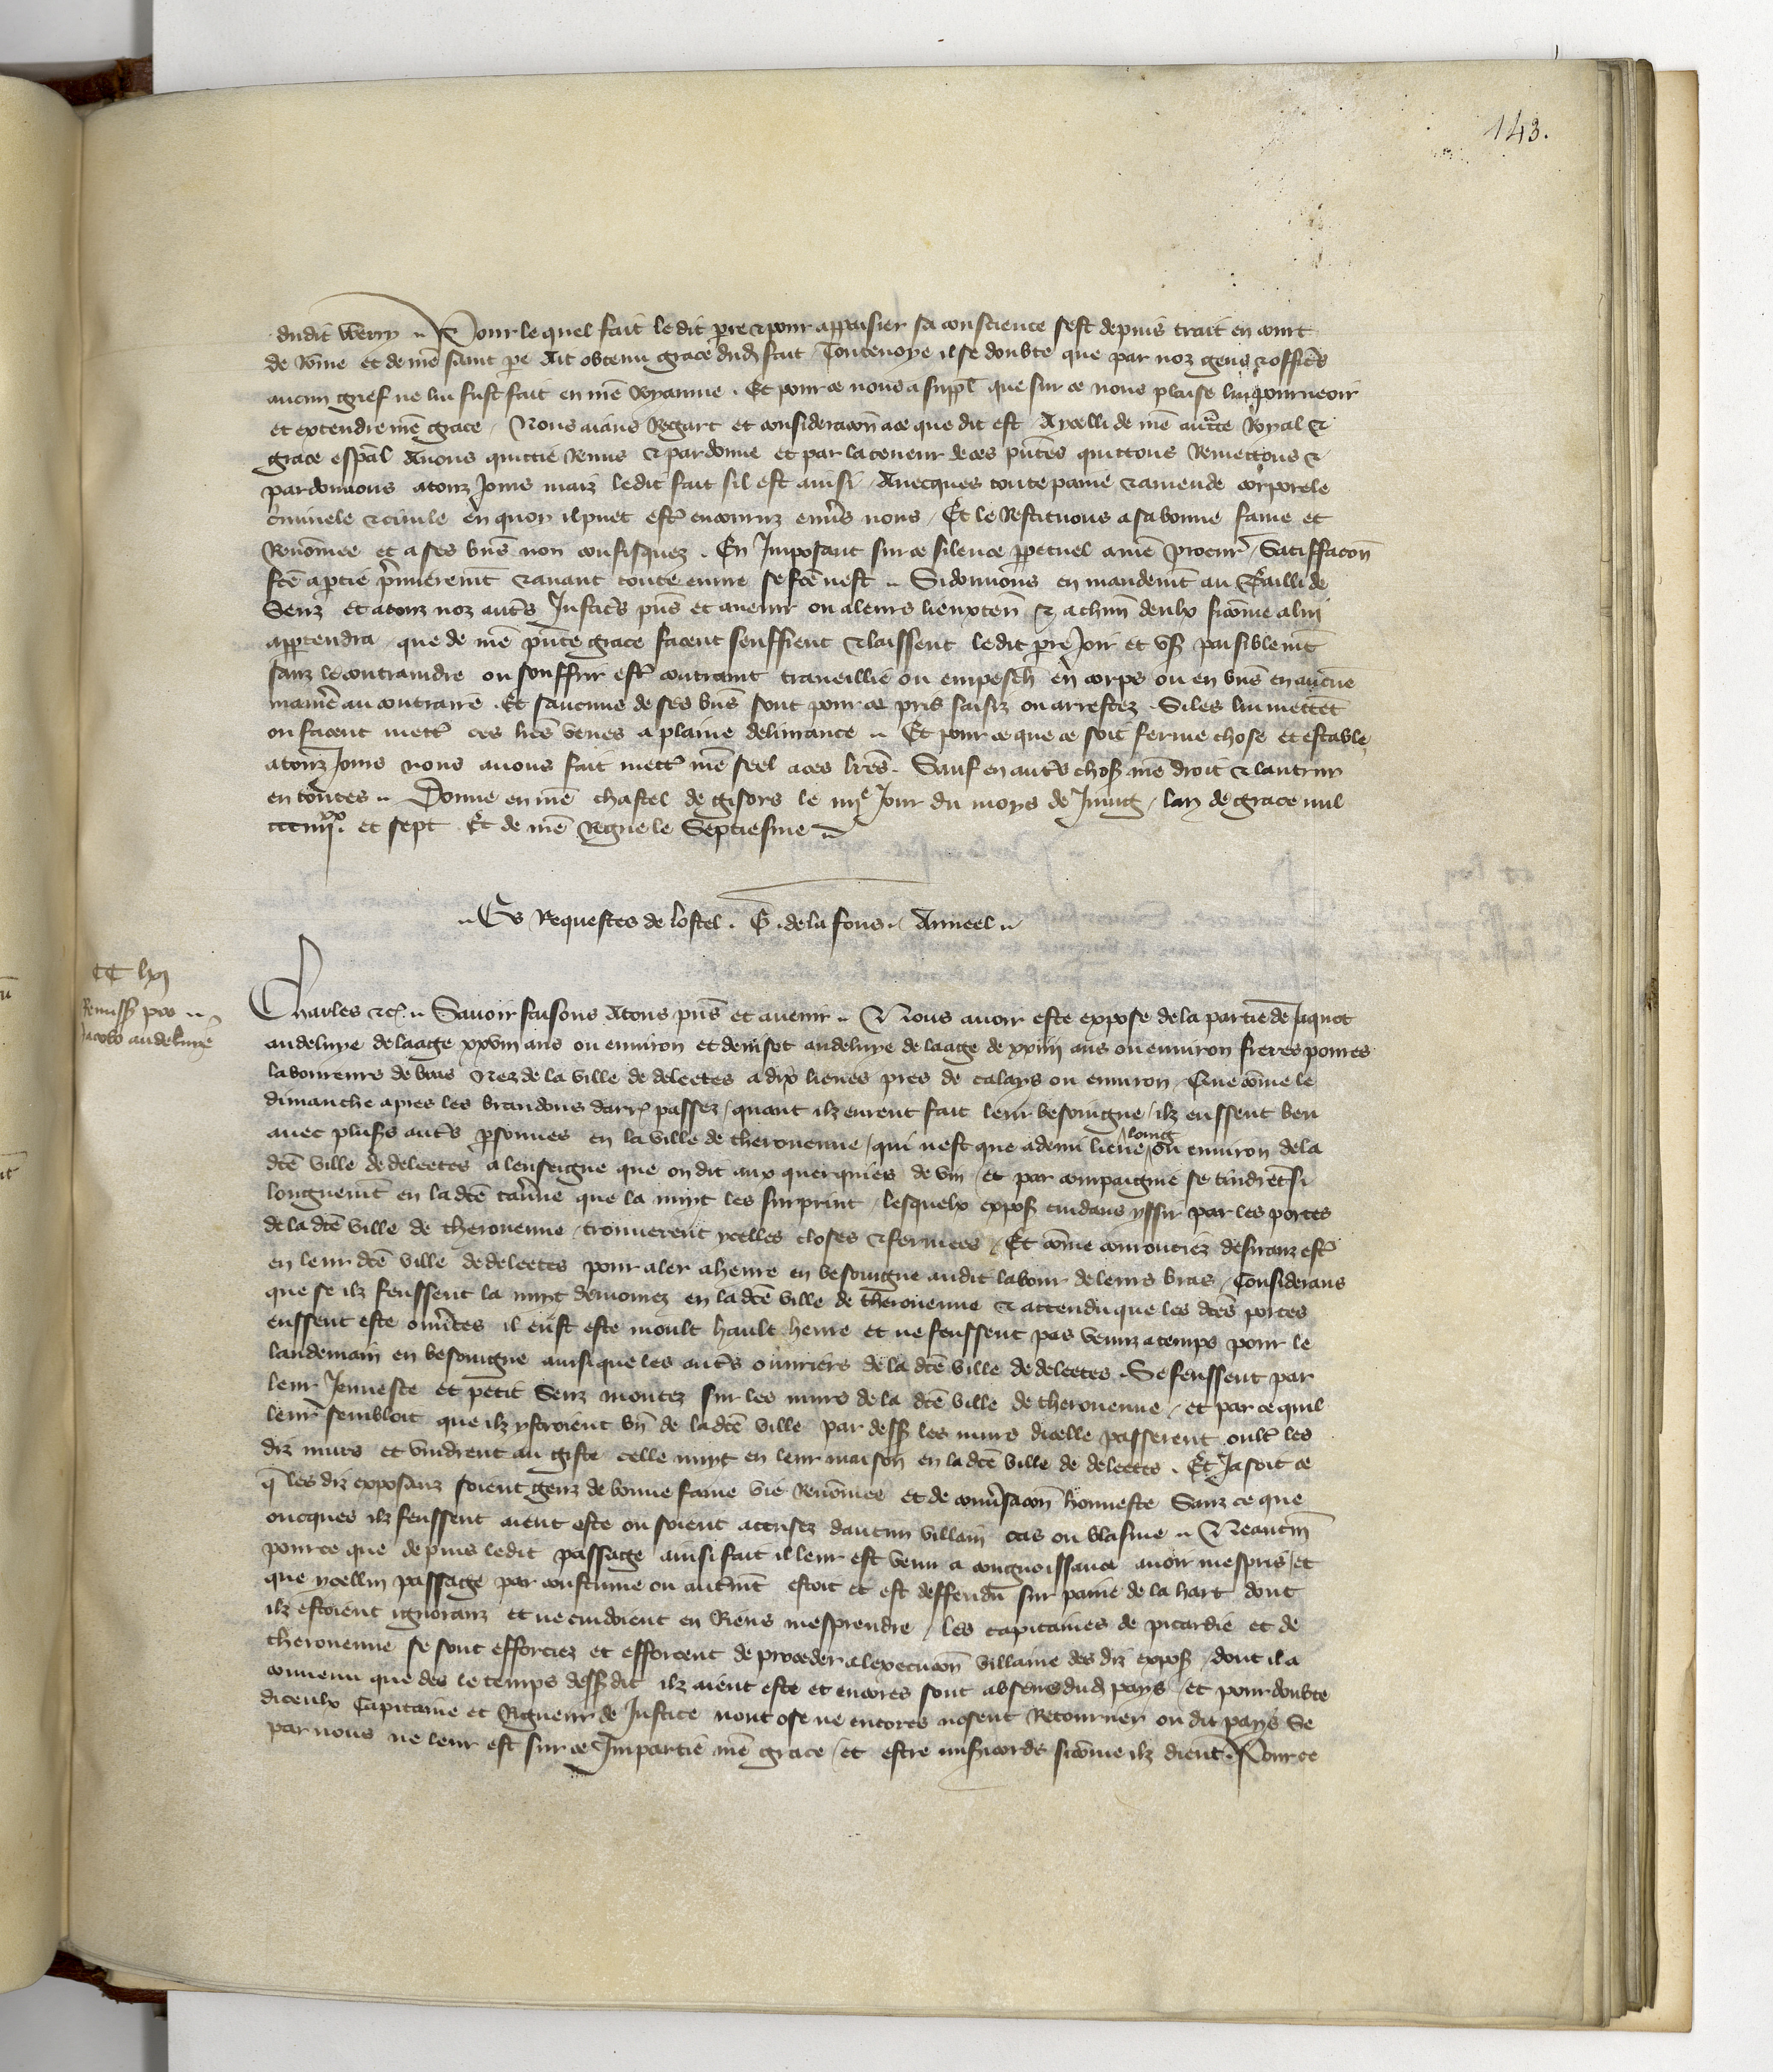 143.
dudit Werry .. Pour lequel fait ledit pere & pour appaisier sa conscience sest depuis trait en court
de Rome et de nre saint pe Ait obtenu grace dud fait / Toutevoye il se doubte que par noz gens & offic's
aucun grief ne lui fust fait en nre Royaume . Et pour ce nous a suppl que sur ce nous plaise lui pourveoir
et extendre nre grace / Nous aians Regart et consideracon a ce que dit est / A ycelli de nre auctte Royal &
grace espal Avons quittie Remis & pardonne et par la teneur de ces pntes quittons Remettons &
pardonnons a touz Jours maiz ledit fait sil est ainsi / Avecques toute paine & amende corporele
criminele & civile en quoy il puet estr encouruz envs nous / Et le Restituons a sa bonne fame et
Renomee et a ses bns non confisquez . En Imposant sur ce silence ppetuel a nre procur / Satiffacon
fce a ptie p'mierement & avant toute euvre se fce nest .. Si donnons en mandemt au Bailli de
Senz et a touz noz aut's Justic's pns et avenir ou a leurs lieuxten & a chun deulx sicome a lui
appartendra / que de nre pnte grace facent seuffrent & laissent ledit pre Joir et us paisiblemt
sanz le contraindre ou souffrir estr contraint traveillie ou empesch en corps ou en bns en aucune
manie au contraire . Et saucuns de ses bns sont pour ce pris saisiz ou arrestez . Si les lui mettet
ou facent mettr ces lres veues a plaine delivrance .. Et pour ce que ce soit ferme chose et estable
a touz Jours nous avons fait mettr nre seel a ces lres . Sauf en aut's chos nre droit & lautruy
en toutes .. Donne en nre chastel de gisors le iiije Jour du moys de Juing / lan de grace mil
ccc iiijxx. et sept . Et de nre Regne le Septiesme ..
.. Es Requestes de lostel . G . de la fons .. Anneel ..
CC lxj
Remiss pro
Jacobo andeluye
Charles &c .. Savoir faisons A tous pns et avenir .. Nous avoir este expose de la partie de Jaquot
andeluye de laage xxviij ans ou environ et denisot andeluye de laage de xxiiij ans ou environ freres povres
laboureurs de bras Nez de la ville de deleetes a dix lieues pres de calays ou environ / Que come le
dimanche apres les brandons darr passez / quant ilz eurent fait leur besoingne / ilz eussent beu
avec plus's aut's psonnes en la ville de therouenne / qui nest que a demi lieue loing ou environ de la
dce ville de deleetes a lenseigne que on dit aux querquiers de vin / et par compaignie se tindret si
longuemt en la dce tav'ne que la nuyt les surprint / lesquelx expos cuidans yssir par les portes
de la dce ville de therouenne / trouverent ycelles closes & fermees / Et come courouciez desiranz estr
en leur dce ville de deleetes pour aler a heure en besoingne audit labour de leurs bras / Considerans
que se ilz feussent la nuyt demourez en la dce ville de therouenne & attendu que les dces portes
eussent este ouv'tes il eust este moult hault heure et ne feussent pas venuz a temps pour le
landemain en besoingne ainsi que les aut's ouvriers de la dce ville de deleetes . Se feussent par
leur Jeunesce et petit senz montez sur les murs de la dce ville de therouenne / et par ce quil
leur sembloit que ilz ystroient bn de la dce ville par dess les murs dicelle passerent oultr les
diz murs et vindrent au giste celle nuyt en leur maison en la dce ville de deleetes . Et Ja soit ce
q les diz exposanz soient genz de bonne fame vie Renomee et de conv'sacon honneste Sanz ce que
oncques ilz feussent aient este ou soient accusez daucun villain cas ou blasme .. Neantm
pour ce que depuis ledit passage ainsi fait il leur est venu a congnoissance avoir mespris / et
que ycellui passage par coustume ou autmt estoit et est deffendu sur paine de la hart dont
ilz estoient ignoranz et ne cuidoient en Riens mesprendre / les capitaines de picardie et de
therouenne se sont efforciez et efforcent de proceder a lexecucon villaine des diz expos / dont il a
convenu que des le temps dessdit ilz aient este et encores sont absens dud pays / et pour doubte
diceulx Capitaine et Rigueur de Justice nont ose ne encores nosent Retourner ou dit pays Se
par nous ne leur est sur ce Impartie nre grace / et estre mis'icorde sicome ilz dient . Pour ce